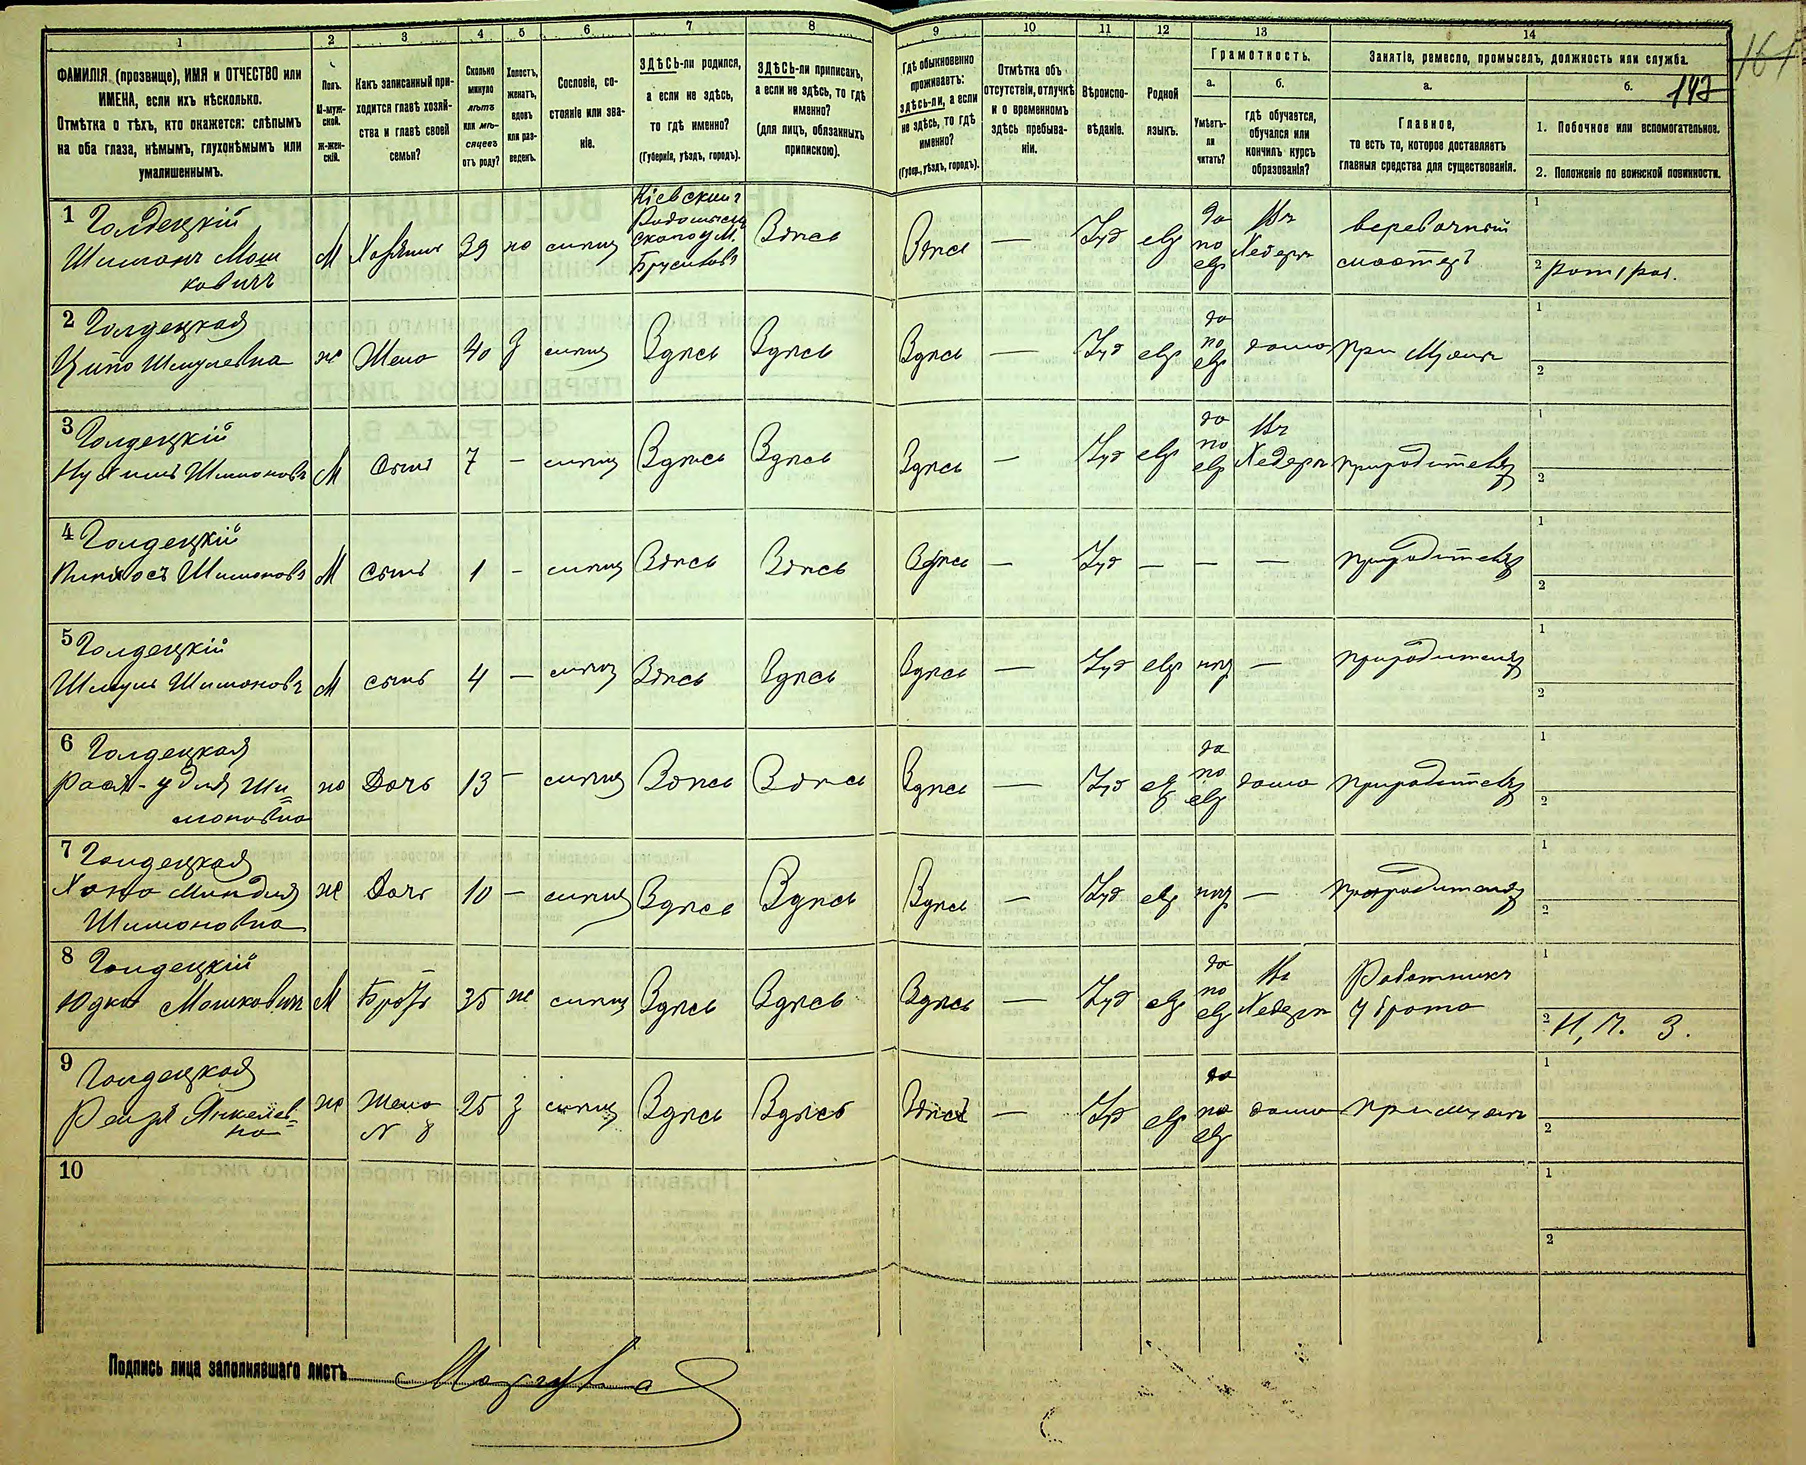 1 2 3 4 5 6 7 8 9 10 11 12 13 14
ФАМИЛІЯ (прозвище), ИМЯ и ОТЧЕСТВО или
ИМЕНА, если ихъ нѣсколько.
Отмѣтка о тѣхъ, кто окажется: слѣпымъ
на оба глаза, нѣмымъ, глухонѣмымъ или
умалишеннымъ.
Полъ.
М-муж-
ской.
Ж-жен-
скій.
Какъ записанный при-
ходится главѣ хозяй-
ства и главѣ своей
семьи?
Сколько
минуло
лѣтъ
или мѣ-
сяцевъ
отъ роду?
Холостъ,
женатъ,
вдовъ
или раз-
веденъ.
Сословіе, со-
стояніе или зва-
ніе.
ЗДѢСЬ-ли родился,
а если не здѣсь,
то гдѣ именно?
(Губернія, уѣздъ, городъ).
ЗДѢСЬ-ли приписанъ,
а если не здѣсь, то гдѣ
именно?
(для лицъ, обязанныхъ
припискою).
Гдѣ обыкновенно
проживаетъ:
здѣсь-ли, а если
не здѣсь, то гдѣ
именно?
(Губер., уѣздъ, городъ).
Отмѣтка объ
отсутствіи, отлучкѣ
и о временномъ
здѣсь пребыва-
ніи.
Вѣроиспо-
вѣданіе.
Родной
языкъ.
Грамотность.
а.
Умѣетъ-
ли
читать?
б.
гдѣ обучается,
обучался или
кончилъ курсъ
образованія?
Занятіе, ремесло, промыселъ, должность или служба.
а.
Главное,
то есть то, которое доставляетъ
главныя средства для существованія.
б.
1. Побочное или вспомогательное.
2. Положеніе по воинской повинности.
161
1 Голдецкій
Шимонъ Мош
ковичъ
М Хозяинъ 39
Кіевский г
М.
Брусиловъ
Вдпсь Вдпсь — Іуд евр
да
по
евр
Въ
Хедеръ
веревочный
мастер
1
2
2 Голдецкая
Ципа Шмулевна
же Жена 40 З Вдпсь Вдпсь Вдпсь — Іуд евр
да
по
евр
дома при Мужъ
1
2
3 Голдецкій
Нухимъ Шимоновъ
М Сынъ 7 – Вдпсь Вдпсь Вдпсь — Іуд евр
да
по
евр
Въ
Хедеръ
1
2
4 Голдецкій
Пинхосъ Шимоновъ
М Сынъ 1 – Вдпсь Вдпсь Вдпсь — Іуд — — —
1
2
5 Голдецкій
Шмуль Шимоновъ
М сынъ 4 — Вдпсь Вдпсь Вдпсь — Іуд евр —
1
2
6 Голдецкая
Ши=
моновна
Дочь 13 – Вдпсь Вдпсь Вдпсь — Іуд евр
да
по
евр
дома
1
2
7 Голдецкая
Хана Миндля
Шимоновна
же Дочь 10 – Вдпсь Вдпсь Вдпсь — Іуд евр —
1
2
8 Голдецкій
Юдко Мошковичъ
М Братъ 35 же Вдпсь Вдпсь Вдпсь — Іуд евр
да
по
евр
Въ
Хедеръ
Работникъ
у брата
1
2
9 Голдецкая
Янкелев=
на
же Жена
N 8
25 З Вдпсь Вдпсь Вдпсь — Іуд евр
да
по
евр
дома при мужъ
1
2
10
1
2
Подпись лица заполнявшаго листъ